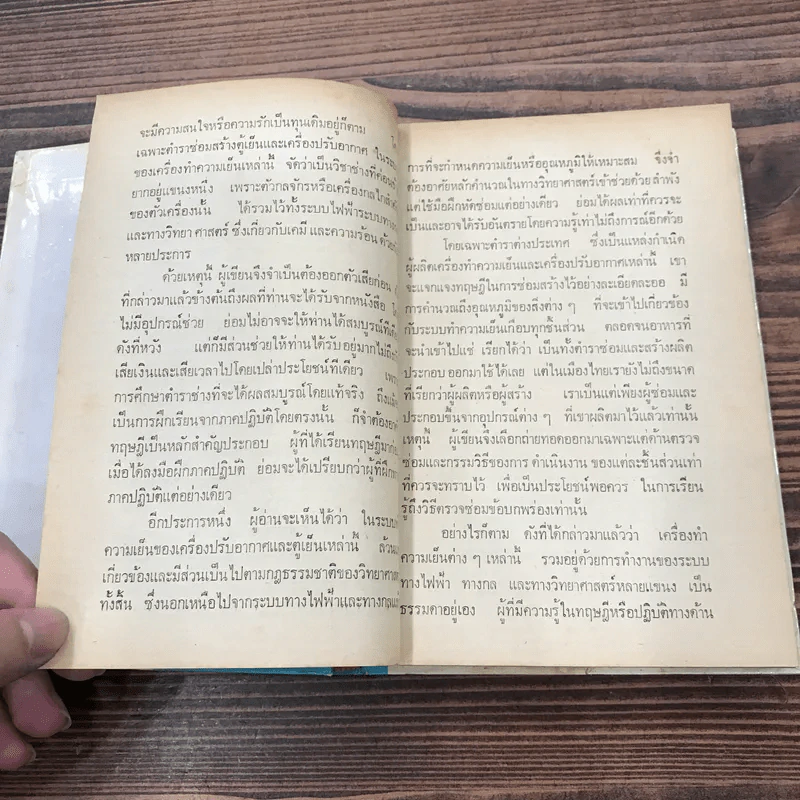 จะมีความสนใจหรือความรักเป็นทุนเดิมอยู่ก็ตาม โด
เฉพาะตำราซ่อมสร้างตู้เย็นและเครื่องปรับอากาศ ในระ
ของเครื่องทำความเย็นเหล่านี้ จัดว่าเป็นวิชาช่างที่ค่อน
ยากอยู่แขนงหนึ่ง เพราะตัวกลจักรหรือเครื่องกลไก
ของตัวเครื่องนั้น ได้รวมไว้ทั้งระบบไฟฟ้าระบบทาง
และทางวิทยาศาสตร์ ซึ่งเกี่ยวกับเคมี และความร้อน ด้วย
หลายประการ
ด้วยเหตุนี้ ผู้เขียนจึงจำเป็นต้องออกตัวเสียก่อน
ที่กล่าวมาแล้วข้างต้นถึงผลที่ท่านจะได้รับจากหนังสือ
ไม่มีอุปกรณ์ช่วย ย่อมไม่อาจจะให้ท่านได้สมบูรณ์ที่
ดังที่หวัง แต่ก็มีส่วนช่วยให้ท่านได้รับอยู่มากไม่ถึง
เสียเงินและเสียเวลาไปโดยเปล่าประโยชน์ทีเดียว เพรา
การศึกษาตำราช่างที่จะได้ผลสมบูรณ์โดยแท้จริง ถึงแม้
เป็นการฝึกเรียนจากภาคปฏิบัติโดยตรงนั้น ก็จำต้องอา
ทฤษฎีเป็นหลักสำคัญประกอบ ผู้ที่ได้เรียนทฤษฎีมา
เมื่อได้ลงมือฝึกภาคปฏิบัติ ย่อมจะได้เปรียบกว่าผู้ที่ฝึก
ภาคปฏิบัติแต่อย่างเดียว
อีกประการหนึ่ง ผู้อ่านจะเห็นได้ว่า ในระบบ
ความเย็นของเครื่องปรับอากาศและตู้เย็นเหล่านี้ ล้วน
เกี่ยวข้องและมีส่วนเป็นไปตามกฎธรรมชาติของวิทยาศา
ทั้งสิ้น ซึ่งนอกเหนือไปจากระบบทางไฟฟ้าและทางกล
การที่จะกำหนดความเย็นหรืออุณหภูมิให้เหมาะสม จึงจำ
ต้องอาศัยหลักคำนวณในทางวิทยาศาสตร์เข้าช่วยด้วย ลำพัง
แต่ใช้มือฝึกหัดซ่อมแต่อย่างเดียว ย่อมได้ผลเท่าที่ควรจะ
เป็นและอาจได้รับอันตรายโดยความรู้เท่าไม่ถึงการณ์อีกด้วย
โดยเฉพาะตำราต่างประเทศ ซึ่งเป็นแหล่งกำเนิด
ผู้ผลิตเครื่องทำความเย็นและเครื่องปรับอากาศเหล่านี้ เขา
จะแจกแจงทฤษฎีในการซ่อมสร้างไว้อย่างละเอียดละออ มี
การคำนวณถึงอุณหภูมิของสิ่งต่าง ๆ ที่จะเข้าไปเกี่ยวข้อง
กับระบบทำความเย็นเกือบทุกชิ้นส่วน ตลอดจนอาหารที่
จะนำเข้าไปแช่ เรียกได้ว่า เป็นทั้งตำราซ่อมและสร้างผลิต
ประกอบ ออกมาใช้ได้เลย แต่ในเมืองไทยเรายังไม่ถึงขนาด
ที่เรียกว่าผู้ผลิตหรือผู้สร้าง เราเป็นแต่เพียงผู้ซ่อมและ
ประกอบขึ้นจากอุปกรณ์ต่าง ๆ ที่เขาผลิตมาไว้แล้วเท่านั้น
เหตุนี้ ผู้เขียนจึงเลือกถ่ายทอดออกมาเฉพาะแต่ด้านตรวจ
ซ่อมและกรรมวิธีของการ ดำเนินงาน ของแต่ละชิ้นส่วนเท่า
ที่ควรจะทราบไว้ เพื่อเป็นประโยชน์พอควร ในการเรียน
รู้ถึงวิธีตรวจซ่อมข้อบกพร่องเท่านั้น
อย่างไรก็ตาม ดังที่ได้กล่าวมาแล้วว่า เครื่องทำ
ความเย็นต่าง ๆ เหล่านี้ รวมอยู่ด้วยการทำงานของระบบ
ทางไฟฟ้า ทางกล และทางวิทยาศาสตร์หลายแขนง เป็น
ธรรมดาอยู่เอง ผู้ที่มีความรู้ในทฤษฎีหรือปฏิบัติทางด้าน